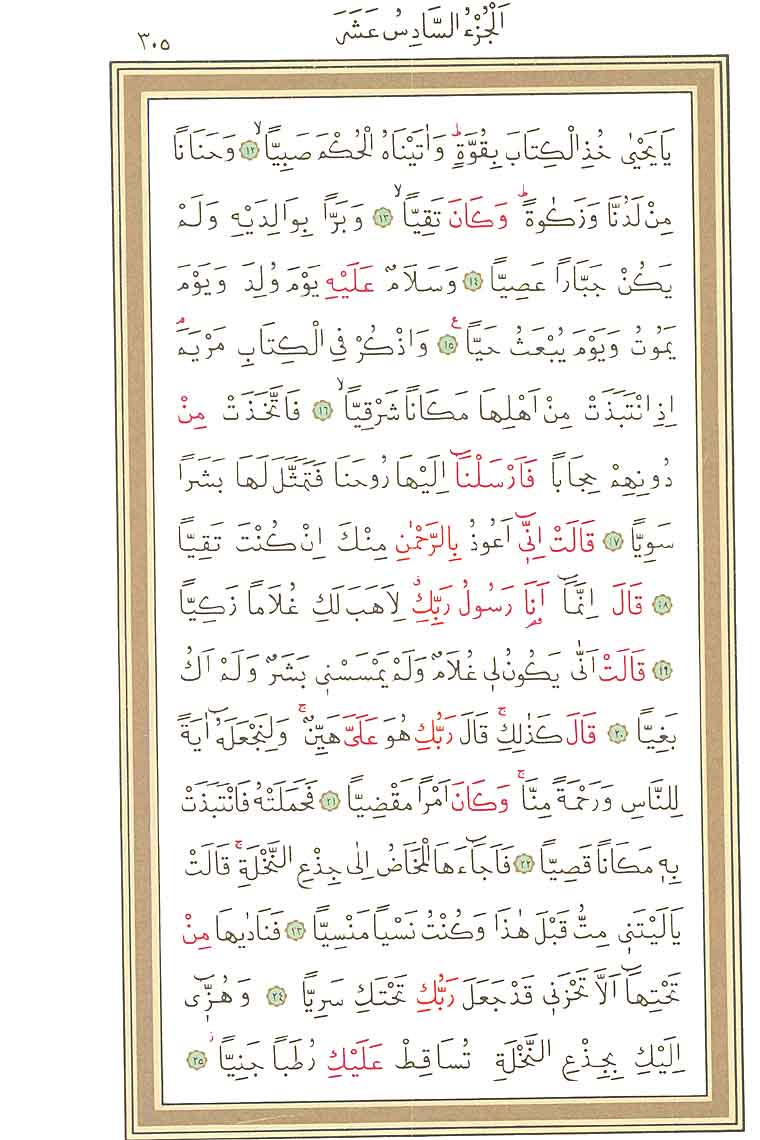 اَلْجُزْءُ السَّادِسُ عَشَرَ
٣٠٥
يَا يَحْيٰى خُذِ الْكِتَابَ بِقُوَّةٍۜ وَاٰتَيْنَاهُ الْحُكْمَ صَبِيًّاۙ ﴿١٢﴾ وَحَنَانًا
مِنْ لَدُنَّا وَزَكٰوةًۜ وَكَانَ تَقِيًّاۙ ﴿١٣﴾ وَبَرًّا بِوَالِدَيْهِ وَلَمْ
يَكُنْ جَبَّارًا عَصِيًّا ﴿١٤﴾ وَسَلَامٌ عَلَيْهِ يَوْمَ وُلِدَ وَيَوْمَ
يَمُوتُ وَيَوْمَ يُبْعَثُ حَيًّا ﴿١٥﴾ وَاذْكُرْ فِي الْكِتَابِ مَرْيَمَۢ
اِذِ انْتَبَذَتْ مِنْ اَهْلِهَا مَكَانًا شَرْقِيًّاۙ ﴿١٦﴾ فَاتَّخَذَتْ مِنْ
دُونِهِمْ حِجَابًا فَاَرْسَلْنَٓا اِلَيْهَا رُوحَنَا فَتَمَثَّلَ لَهَا بَشَرًا
سَوِيًّا ﴿١٧﴾ قَالَتْ اِنّ۪ٓي اَعُوذُ بِالرَّحْمٰنِ مِنْكَ اِنْ كُنْتَ تَقِيًّا
﴿١٨﴾ قَالَ اِنَّمَٓا اَنَا۬ رَسُولُ رَبِّكِۗ لِاَهَبَ لَكِ غُلَامًا زَكِيًّا
﴿١٩﴾ قَالَتْ اَنّٰى يَكُونُ ل۪ي غُلَامٌ وَلَمْ يَمْسَسْن۪ي بَشَرٌ وَلَمْ اَكُ
بَغِيًّا ﴿٢٠﴾ قَالَ كَذٰلِكِۚ قَالَ رَبُّكِ هُوَ عَلَيَّ هَيِّنٌۚ وَلِنَجْعَلَهُٓ اٰيَةً
لِلنَّاسِ وَرَحْمَةً مِنَّاۚ وَكَانَ اَمْرًا مَقْضِيًّا ﴿٢١﴾ فَحَمَلَتْهُ فَانْتَبَذَتْ
بِه۪ مَكَانًا قَصِيًّا ﴿٢٢﴾ فَاَجَٓاءَهَا الْمَخَاضُ اِلٰى جِذْعِ النَّخْلَةِۚ قَالَتْ
يَا لَيْتَن۪ي مِتُّ قَبْلَ هٰذَا وَكُنْتُ نَسْيًا مَنْسِيًّا ﴿٢٣﴾ فَنَادٰيهَا مِنْ
تَحْتِهَٓا اَلَّا تَحْزَن۪ي قَدْ جَعَلَ رَبُّكِ تَحْتَكِ سَرِيًّا ﴿٢٤﴾ وَهُزّ۪ٓي
اِلَيْكِ بِجِذْعِ النَّخْلَةِ تُسَاقِطْ عَلَيْكِ رُطَبًا جَنِيًّاۘ ﴿٢٥﴾